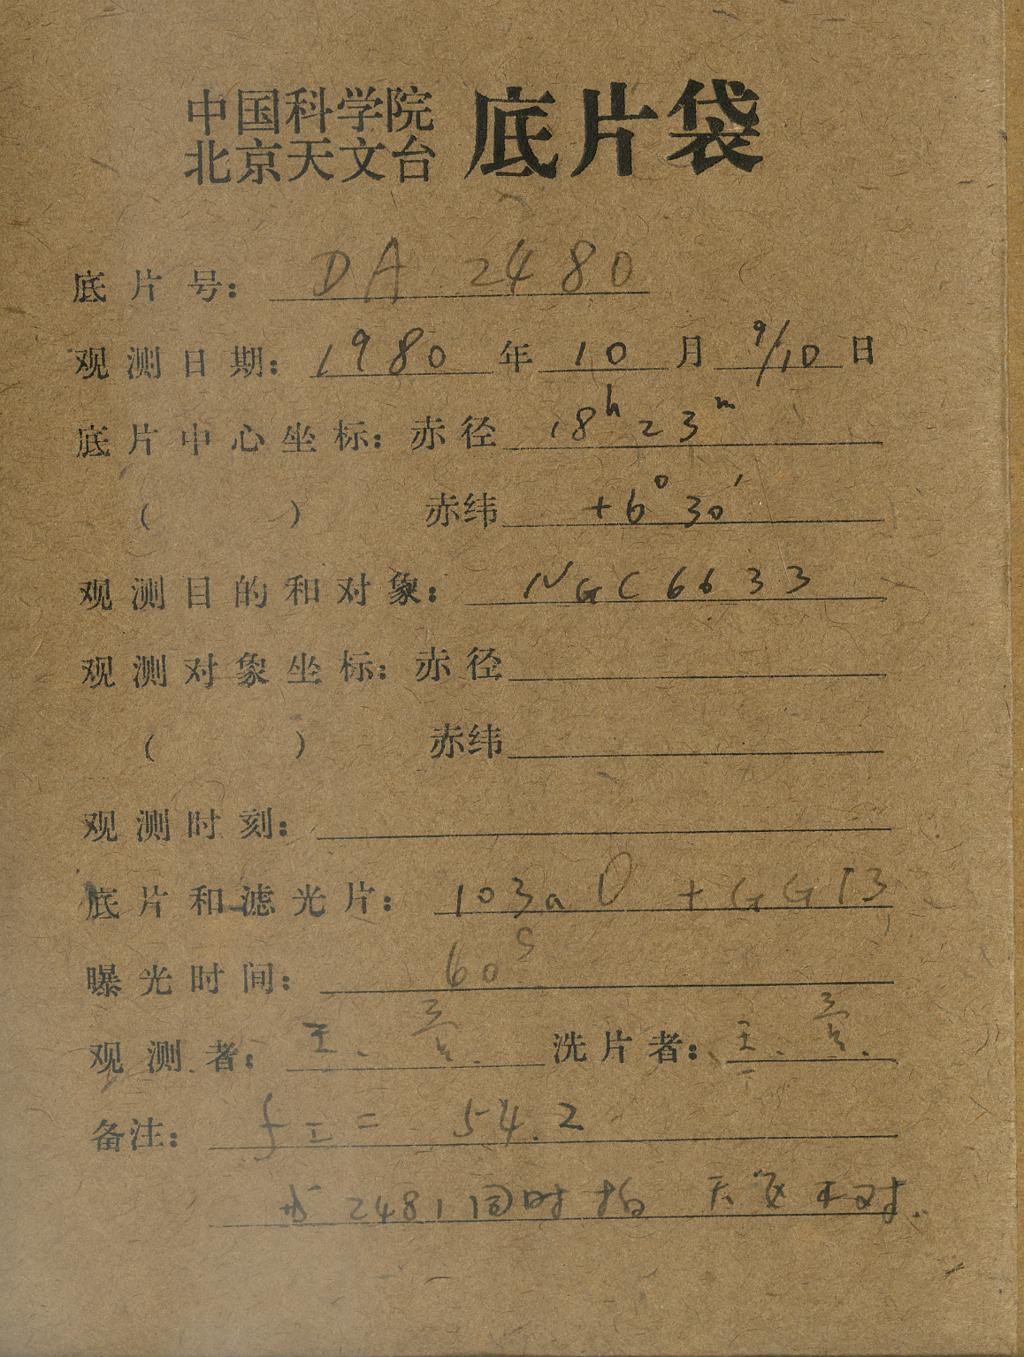 中国科学院
北京天文台 底片袋
底片号: DA 2480
观测日期: 1980 年 10 月 9/10 日
底片中心坐标: 赤径 18h 23m
( ) 赤纬 +6° 30′
观测目的和对象: NGC 6633
观测对象坐标: 赤径
( ) 赤纬
观测时刻:
底片和滤光片: 103aO + GG13
曝光时间: 60s
观测者: 王. 洗片者: 王.
备注: fI = 54.2
与 2481 同时拍 不对.